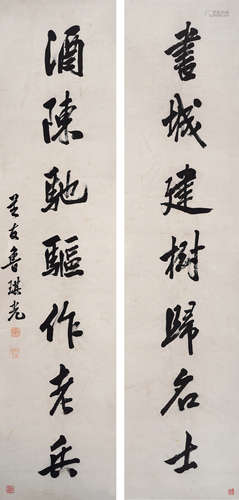 書城建樹歸名士
酒陳馳驅作老兵
芝友魯琪光